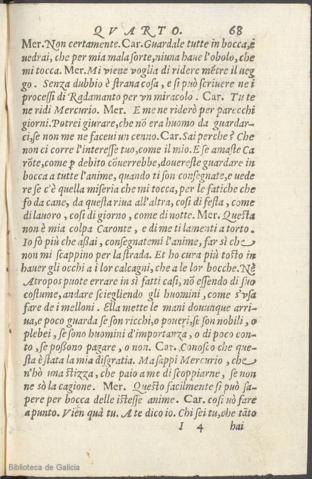 QVARTO. 68
Mer. Non certamente. Car. Guardale tutte in bocca, e
uedrai, che per mia mala sorte, niuna haue l'obolo, che
mi tocca. Mer. Mi viene voglia di ridere mẽtre il ueg
go. Senza dubbio è strana cosa, e si può scriuere ne i
processi di Radamanto per vn miracolo. Car. Tu te
ne ridi Mercurio. Mer. E me ne riderò per parecchi
giorni. Potrei giurare, che nõ era huomo da guardar-
ci, se non me ne faceui un cenno. Car. Sai perche? Che
non ci corre l'interesse tuo, come il mio. E se amaste Ca
rõte, come p debito cõuerrebbe, douereste guardare in
bocca a tutte l'anime, quando ti son consegnate, e uede
re se c'è quella miseria che mi tocca, per le fatiche che
fo da cane, da questa riua all'altra, cosi di festa, come
di lauoro, cosi di giorno, come di notte. Mer. Questa
non è mia colpa Caronte, e di me ti lamenti a torto.
Io sò più che assai, consegnatemi l'anime, far sì che
non mi scappino per la strada. Et ho cura più tosto in
hauer gli occhi a i lor calcagni, che a le lor bocche. Nè
Atropos puote errare in sì fatti casi, nõ essendo di suo
costume, andare sciegliendo gli huomini, come s'vsa
fare de i melloni. Ella mette le mani douunque arri-
ua, e poco guarda se son ricchi, o poueri, se son nobili, o
plebei, se sono huomini d'importanza, o di poco con-
to, se possono pagare, o non. Car. Conosco che que-
sta è stata la mia disgratia. Ma sappi Mercurio, che
n'hò una stizza, che paio a me di scoppiarne, se non
ne sò la cagione. Mer. Questo facilmente si può sa-
pere per bocca delle istesse anime. Car. cosi uò fare
a punto. Vien quà tu. A te dico io. Chi sei tu, che tãto
I 4 hai
Biblioteca de Galicia